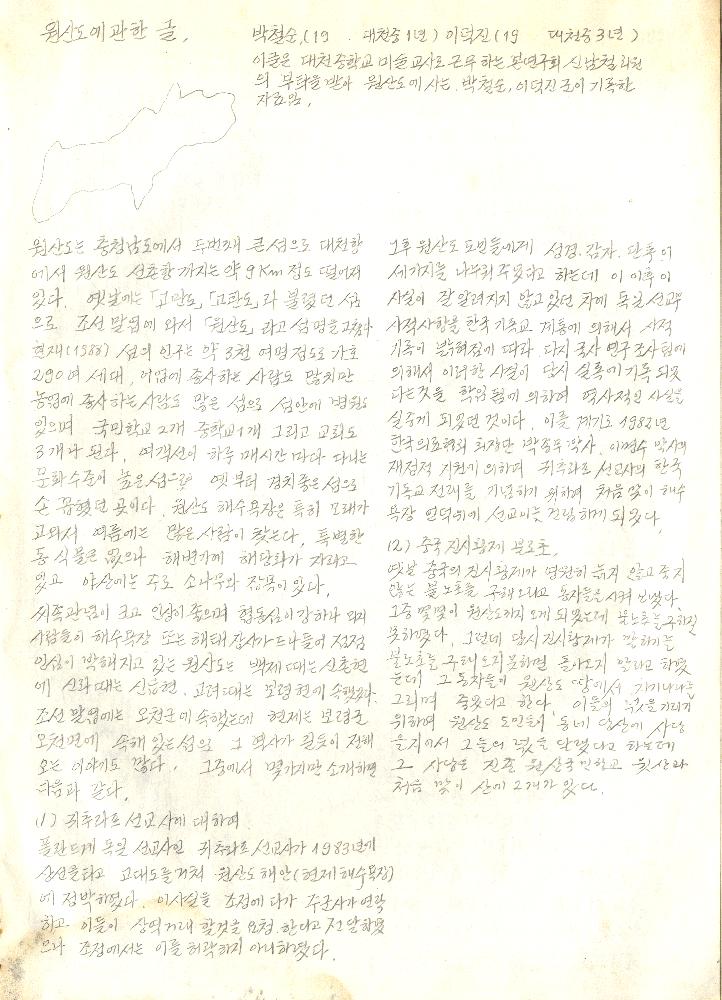 원산도에 관한 글.
박철순,(19 . 대천중1년) 이덕진(19 대천중3년)
이글은 대천중학교 미술교사로 근무하는 본연구회 신남철회원
의 부탁을 받아 원산도에 사는 박철순, 이덕진 군이 기록한
자료임.
원산도는 충청남도에서 두번째 큰섬으로 대천항
에서 원산도 선촌항까지는 약 9Km 정도 떨어져
있다. 옛날에는 「고만도」「고란도」라 불렸던 섬
으로 조선 말엽에 와서 「원산도」라고 섬명을 고쳤다
현재(1988) 섬의 인구는 약 3천 여명정도로 가호
290여 세대, 어업에 종사하는 사람도 많지만
농업에 종사하는 사람도 많은 섬으로 섬안에 병원도
있으며 국민학교 2개 중학교 1개 그리고 교회도
3개나 된다. 여객선이 하루 매시간 마다 다니는
문화수준이 높은 섬으로 옛부터 경치좋은 섬으로
손 꼽혔던 곳이다. 원산도 해수욕장은 특히 모래가
고와서 여름에는 많은 사람이 찾는다. 특별한
동식물은 없으나 해변가에 해당화가 자라고
있고 야산에는 주로 소나무와 잡목이 있다.
씨족관념이 크고 인상이 좋으며 협동심이 강하나 외지
사람들이 해수욕장 또는 해태 잡사가 드나들어 점점
인심이 박해지고 있는 원산도는 백제때는 신촌현
에 신라때는 신읍현. 고려때는 보령현에 속했었다.
조선 말엽에는 오천군에 속했는데 현재는 보령군
오천면에 속해 있는 섬으로 그 역사가 깊듯이 전해
오는 이야기도 많다. 그중에서 몇가지만 소개하면
다음과 같다.
(1) 귀츠라프 선교사에 대하여
폴란드계 독일 선교사인 귀츠라프 선교사가 1983년에
상선을타고 고대도를 거쳐 원산도 해안(현제해수욕장)
에 정박하였다. 이사실을 조정에 다가 주군사가 연락
하고 이들이 상역거래 할것을 요청 한다고 전달하였
으나 조정에서는 이를 허락하지 아니하였다.
그후 원산도 도민들에게 성경. 감자. 단추의
세가지를 나누워 주었다고 하는데 이 이후 이
사실이 잘 알려지지 않고 있던 차에 독일 선교부
사적사항을 한국 기독교 계통에 의해서 사적
기록이 밝혀짐에 따라 다시 국사 연구 조사팀에
의해서 이러한 사실이 당시 실록에 기록 되었
다는것을 학위팀에 의하여 역사적인 사실을
실증케 되었던 것이다. 이를 계기로 1982년
한국의료협회 회장단 박종무 박사. 이명수 박사의
재정적 지원에 의하여 귀츠라프 선교사의 한국
기독교 전래를 기념하기 위하여 처음 맞이 해수
욕장 언덕위에 선교비를 건립하게 되었다.
(2) 중국 진시황제 불로초.
옛날 중국의 진시황제가 영원히 늙지 않고 죽지
않는 불노초를 구해오라고 동자들은 시켜 보냈다.
그중 몇몇이 원산도까지 오게 되었는데 불노초를 구하질
못하였다. 그런데 당시 진시황제가 말하기는
불노초를 구해오지못하면 돌아오지 말라고 하였
는데 그 동자들이 원산도 땅에서 자기나라를
그리며 죽었다고 한다. 이들의 넋을 기리기
위하여 원산도 도민들이 동네 당산에 사당
을지어서 그들의 넋을 달랬다고 하는데
그 사당은 진촌 원산국민학교 뒷산과
처음 맞이 산에 2개가 있다.